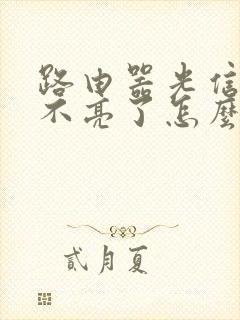 路由器光信
不亮了怎麼
貳月夏